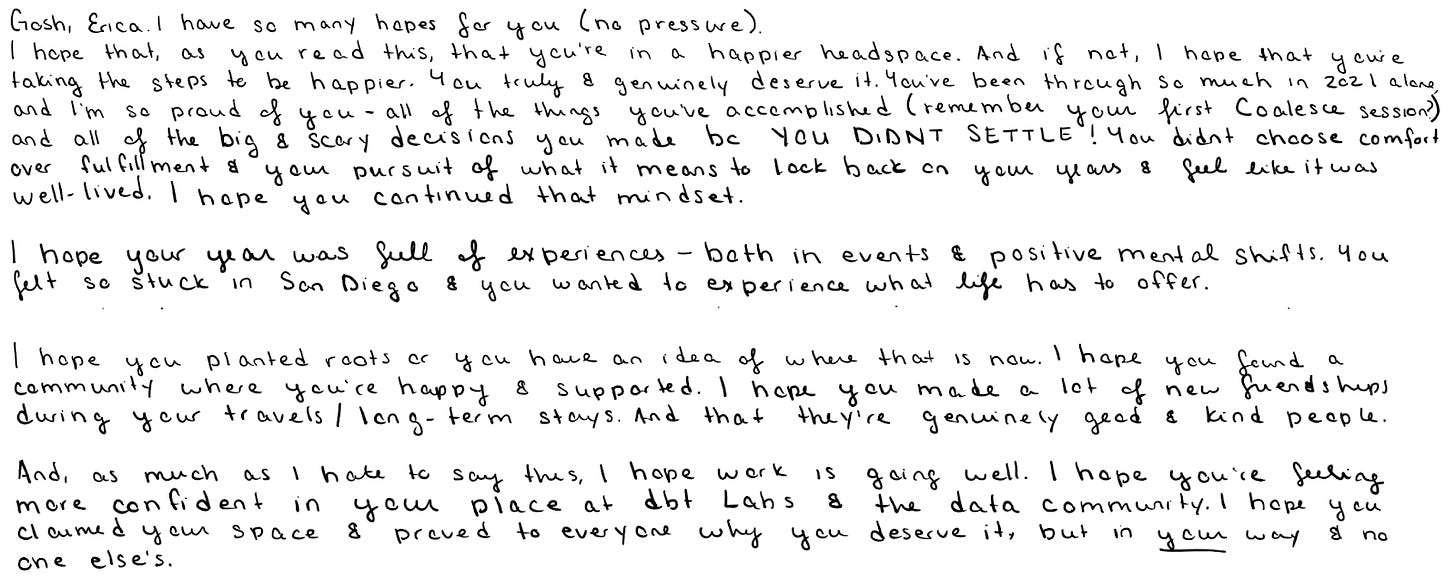 Gosh, Erica. I have so many hopes for you (no pressure).
I hope that, as you read this, that you're in a happier headspace. And if not, I hope that you're
taking the steps to be happier. You truly & genuinely deserve it. You've been through so much in 2021 alone,
and I'm so proud of you - all of the things you've accomplished (remember your first Coalesce session?)
and all of the big & scary decisions you made bc YOU DIDNT SETTLE! You didnt choose comfort
over fulfillment & your pursuit of what it means to look back on your years & feel like it was
well-lived. I hope you continued that mindset.
I hope your year was full of experiences - both in events & positive mental shifts. You
felt so stuck in San Diego & you wanted to experience what life has to offer.
I hope you planted roots or you have an idea of where that is now. I hope you found a
community where you're happy & supported. I hope you made a lot of new friendships
during your travels / long-term stays. And that they're genuinely good & kind people.
And, as much as I hate to say this, I hope work is going well. I hope you're feeling
more confident in your place at dbt Labs & the data community. I hope you
claimed your space & proved to everyone why you deserve it, but in your way & no
one else's.